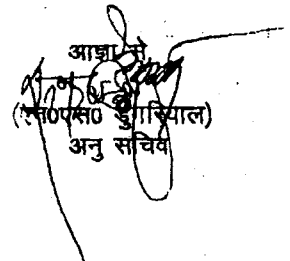 आज्ञा से
(एन०एस० डुंगरियाल)
अनु सचिव